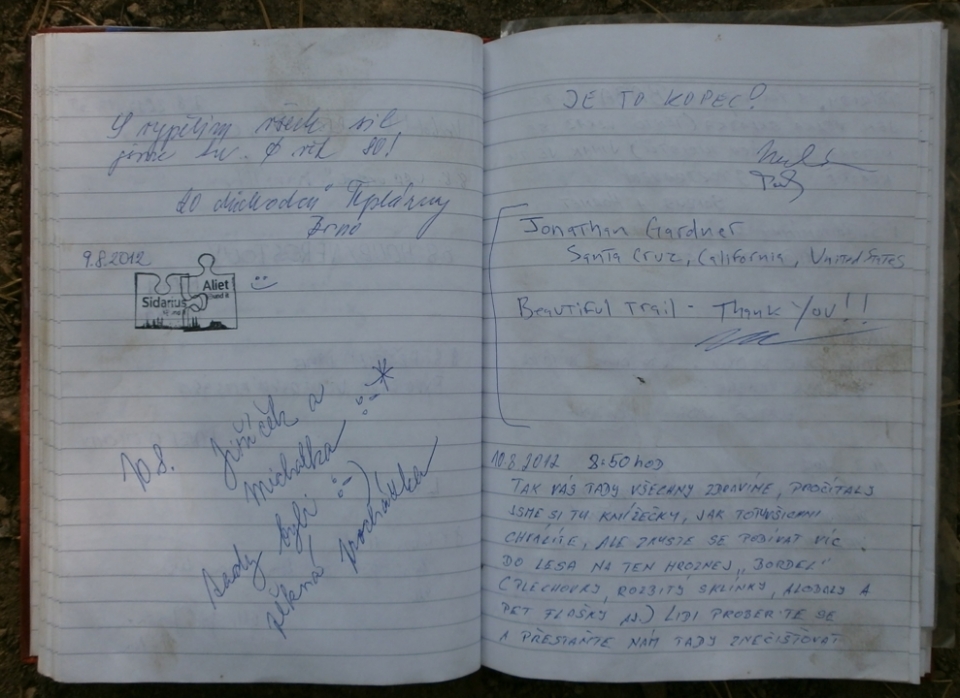 S vypětím všech sil
jsme tu. Φ věk 80!
20 důchodců Teplárny
Brno
9.8.2012
Sidarius
Aliet
10.8.
Jiříček a
Michalka
tady byli
pěkná procházka
JE TO KOPEC!
Jonathan Gardner
Santa Cruz, California, United States
Beautiful Trail - Thank You!!
10.8.2012 8:50 HOD
TAK VÁS TADY VŠECHNY ZDRAVÍME, PROČÍTALI
JSME SI TU KNÍŽEČKY, JAK TO TU VŠICHNI
CHVÁLÍTE, ALE ZKUSTE SE PODÍVAT VÍC
DO LESA NA TEN HROZNEJ „BORDEL"
(PLECHOVKY, ROZBITÝ SKLÍNKY, ALOBALY A
PET FLAŠKY AJ.) LIDI PROBERTE SE
A PŘESTAŇTE NÁM TADY ZNEČIŠŤOVAT